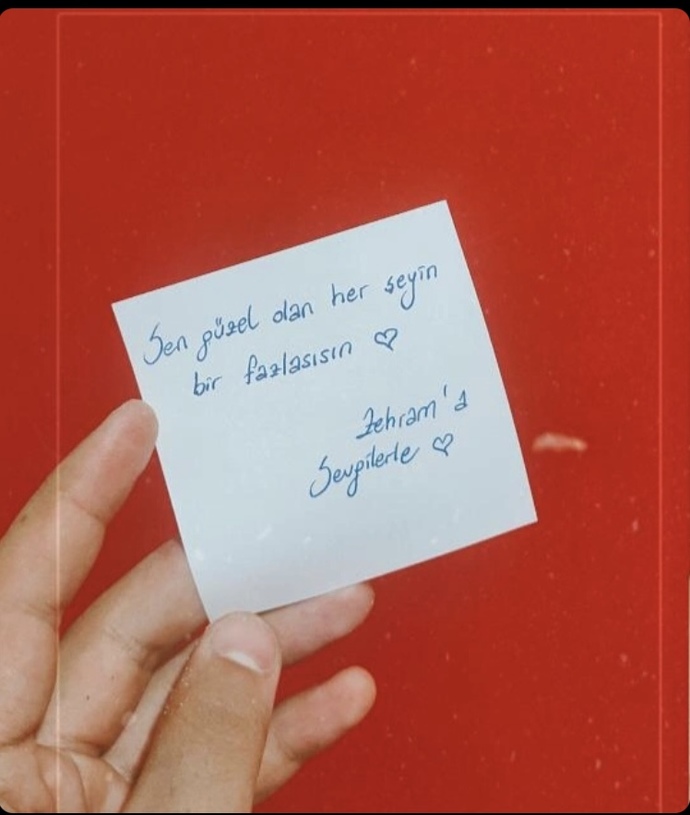 Sen güzel olan her şeyin
bir fazlasısın ♡
Zehram'a
Sevgilerle ♡